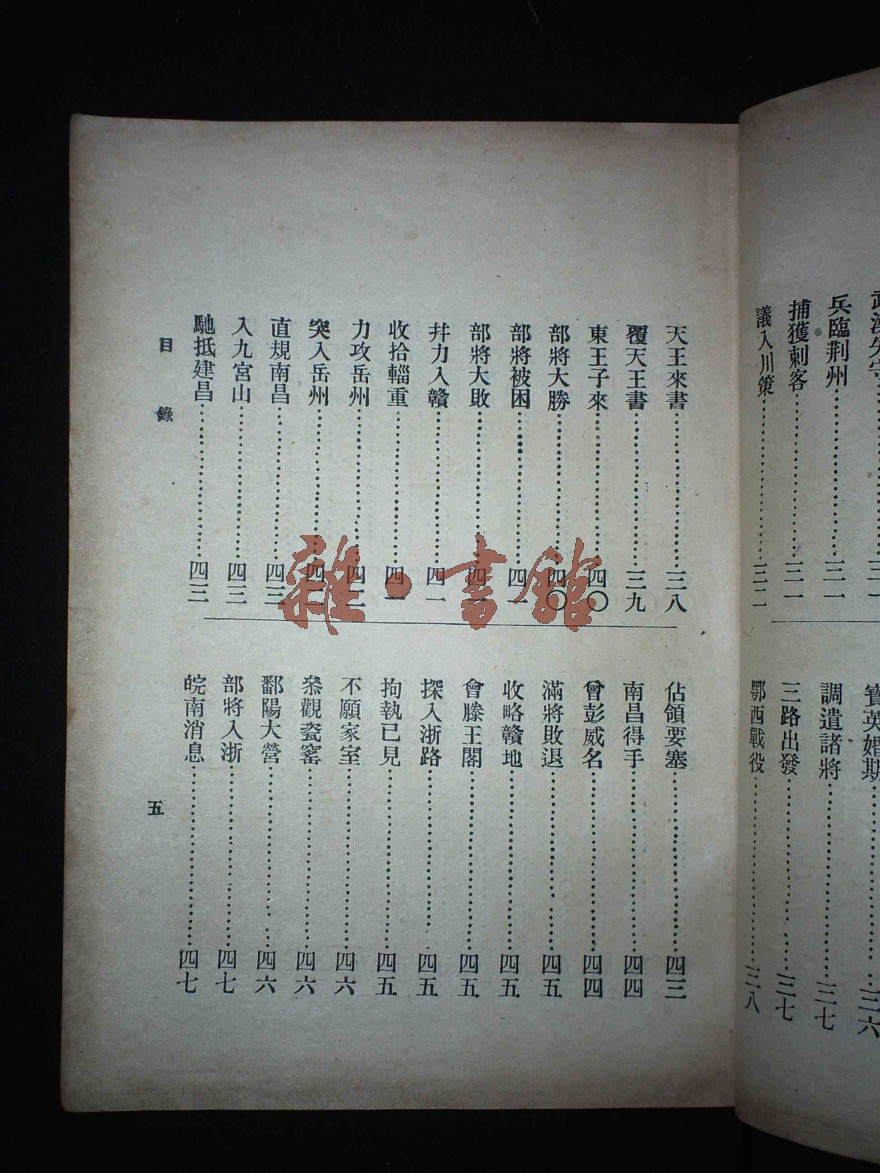 兵臨荆州……三一
捕獲刺客……三一
議入川策……三二
調遣諸將……三七
三路出發……三七
鄂西戰役……三八
天王來書……三八
覆天王書……三九
東王子來……四〇
部將大勝……四〇
部將被困……四一
部將大敗……四一
幷力入贛……四一
收拾輜重
力攻岳州
突入岳州
直規南昌
入九宮山……四三
馳抵建昌……四三
佔領要塞……四三
南昌得手……四四
曾彭威名……四四
滿將敗退……四五
收略贛地……四五
會滕王閣……四五
探入浙路……四五
拘執已見……四五
不願家室……四六
叅觀瓷窰……四六
鄱陽大營……四六
部將入浙……四七
皖南消息……四七
目錄
五
雜·書館